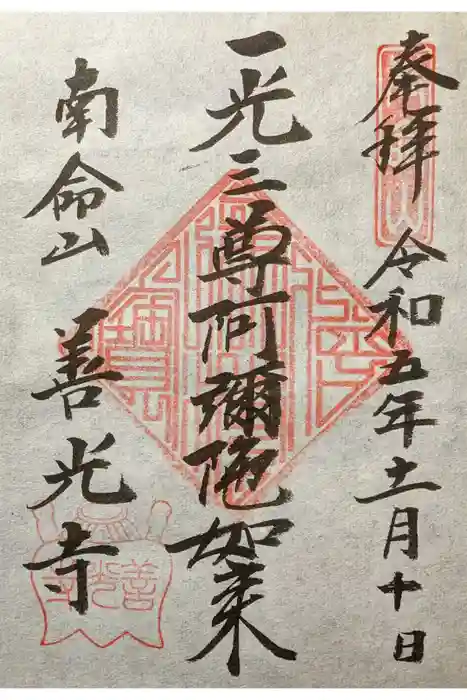 奉拝 令和五年十一月十日
一光三尊阿彌陀如来
南命山 善光寺
善光寺